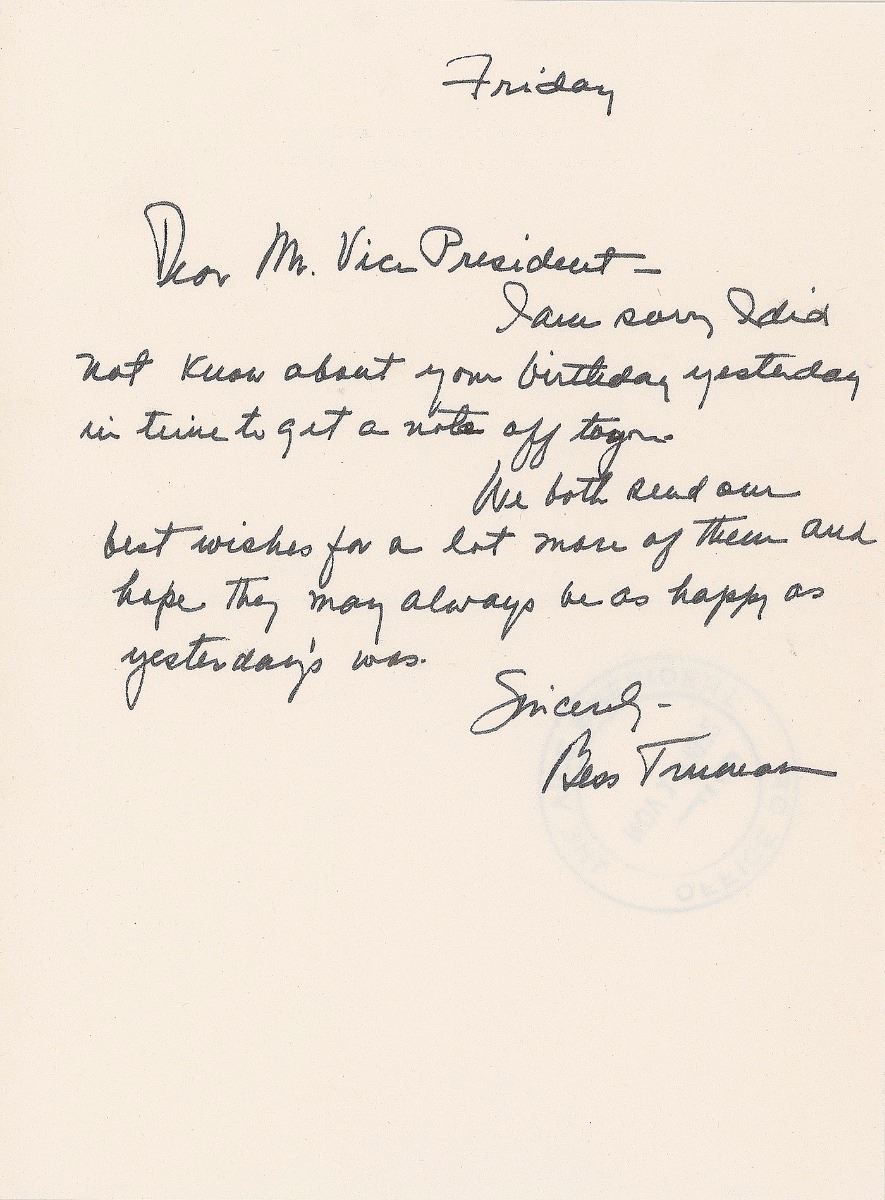 Friday
Dear Mr. Vice President –
I am sorry I did
not know about your birthday yesterday
in time to get a note off to you.
We both send our
best wishes for a lot more of them and
hope they may always be as happy as
yesterday's was.
Sincerely –
Bess Truman
OFFICE
NOV
THE